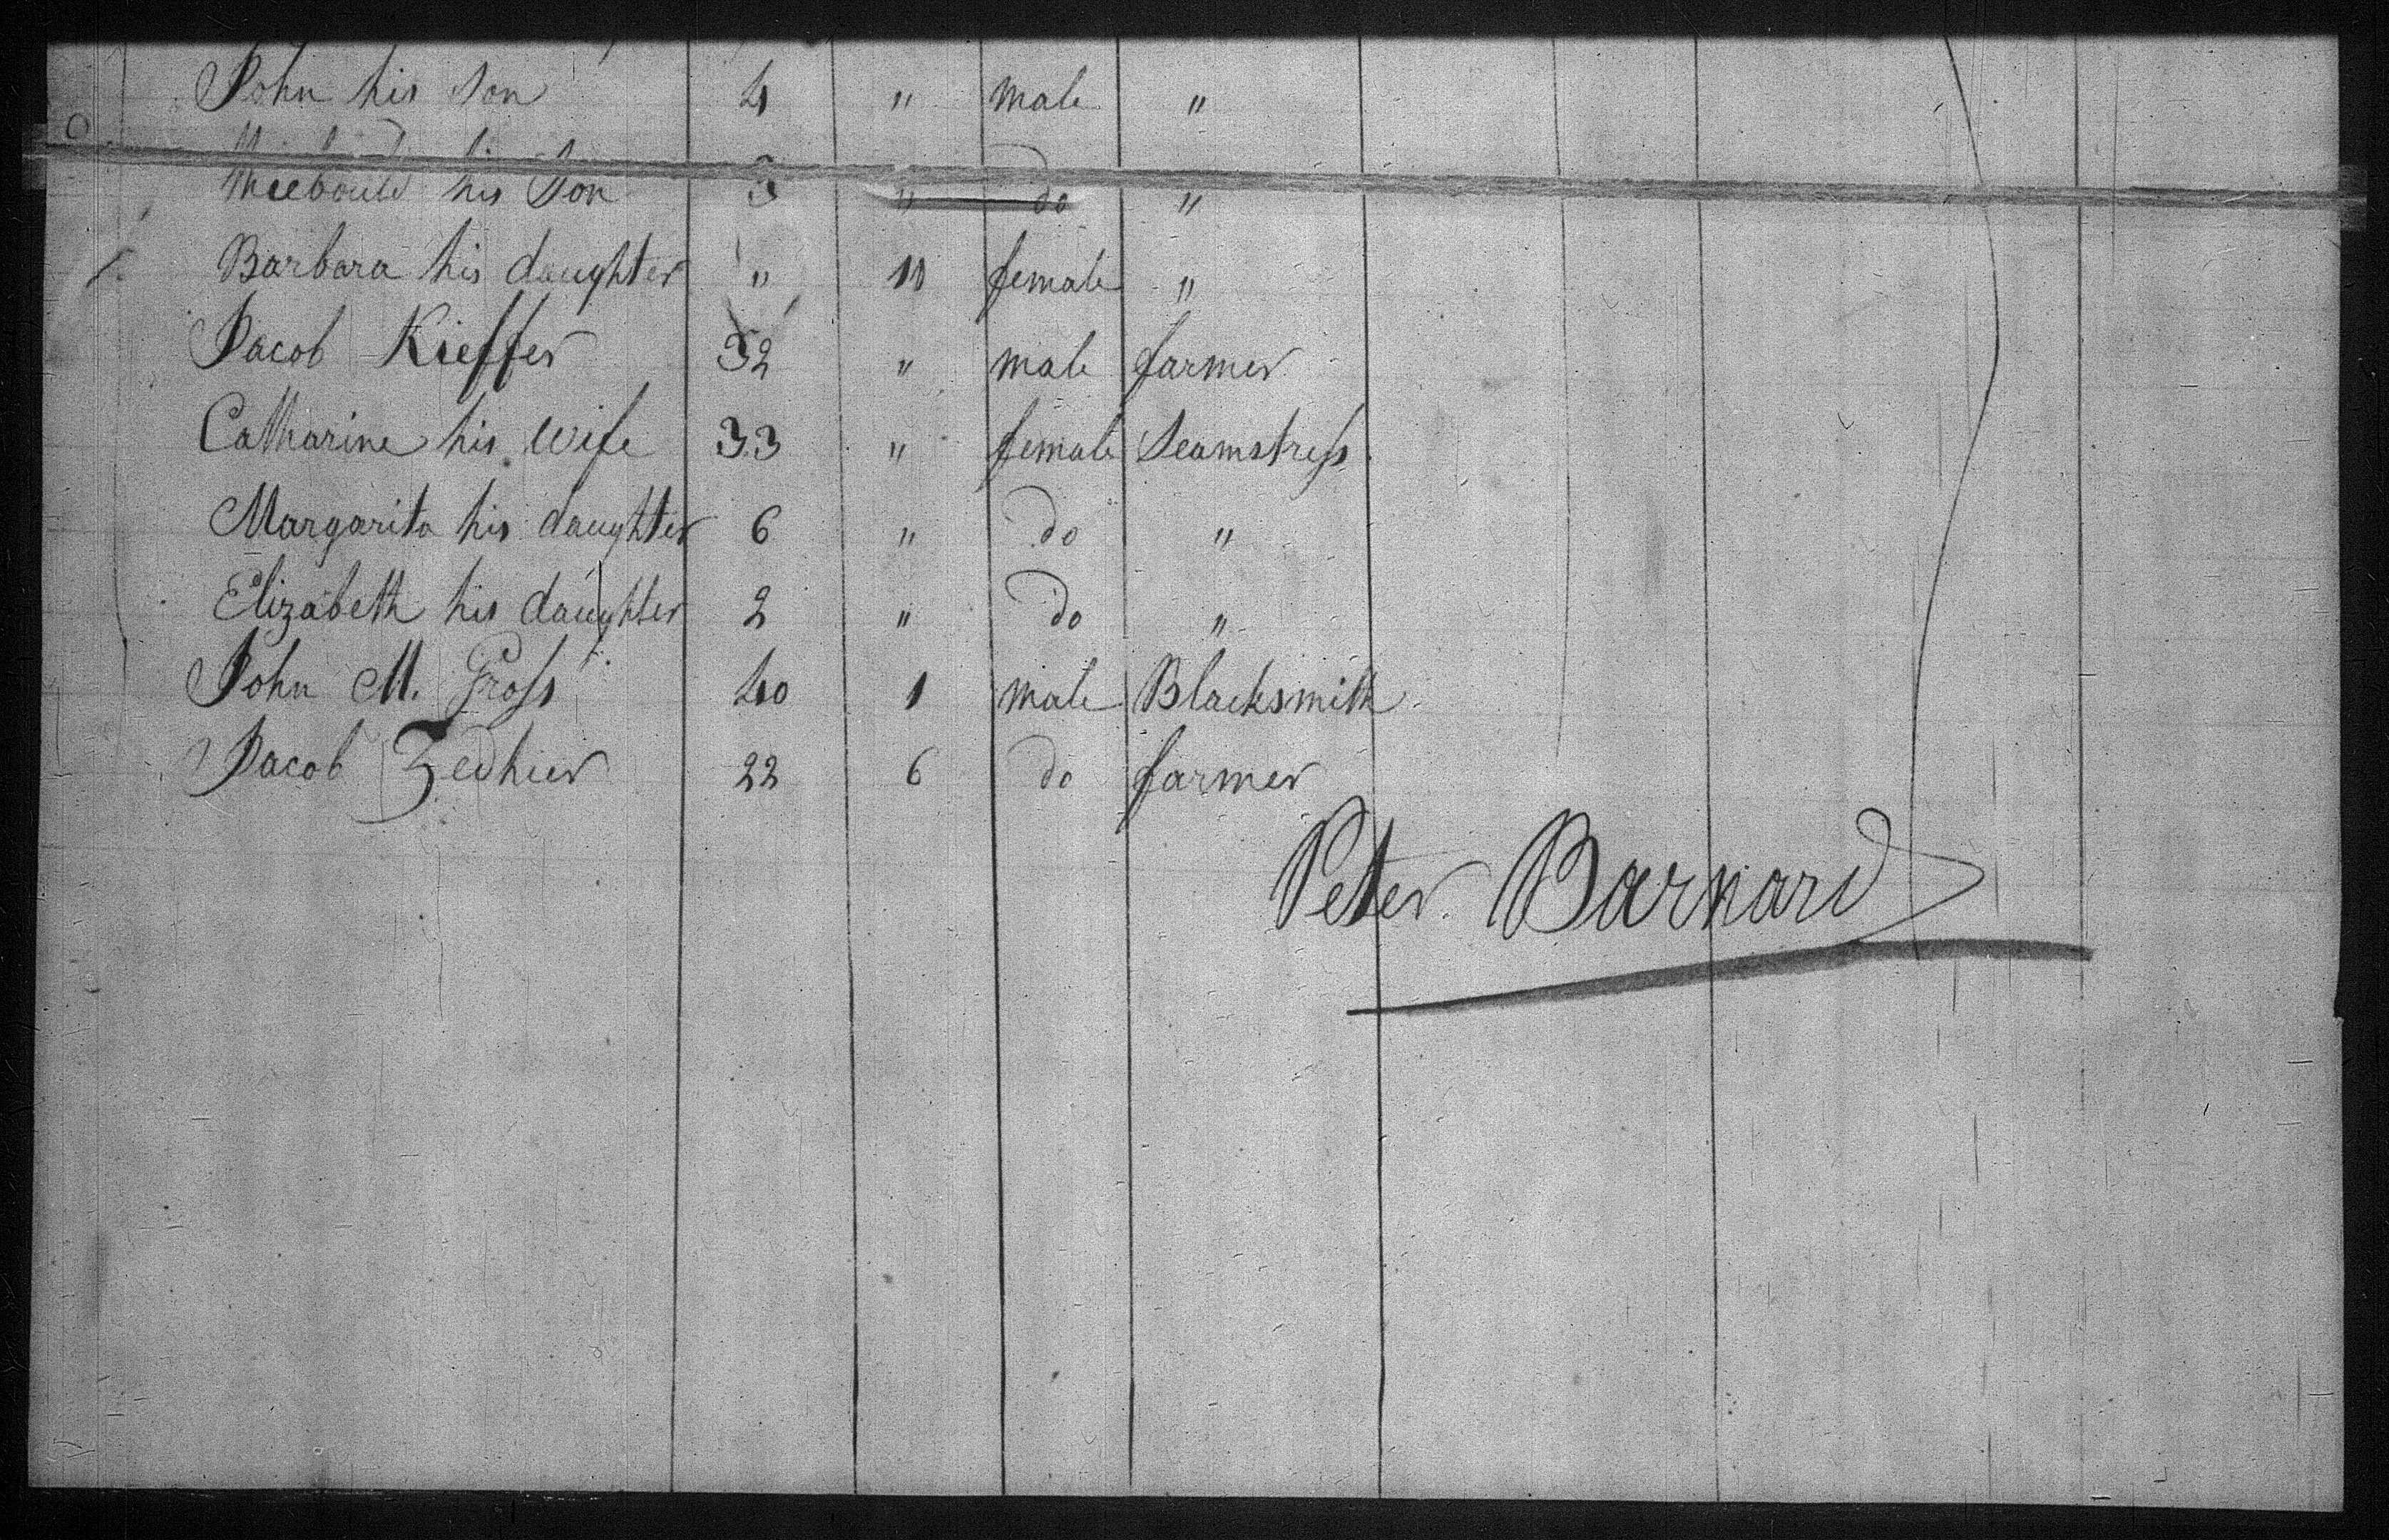 John his Son 4 " male "
Thiebauld his Son 3 " do "
Barbara his daughter " 10 female "
Jacob Kieffer 32 " male farmer
Catharine his wife 33 " female Seamstress
Margarita his daughter 6 " do "
Elizabeth his daughter 2 " do "
John M. Gross 40 1 male Blacksmith
Jacob Zedhier 22 6 do farmer
Peter Barnard